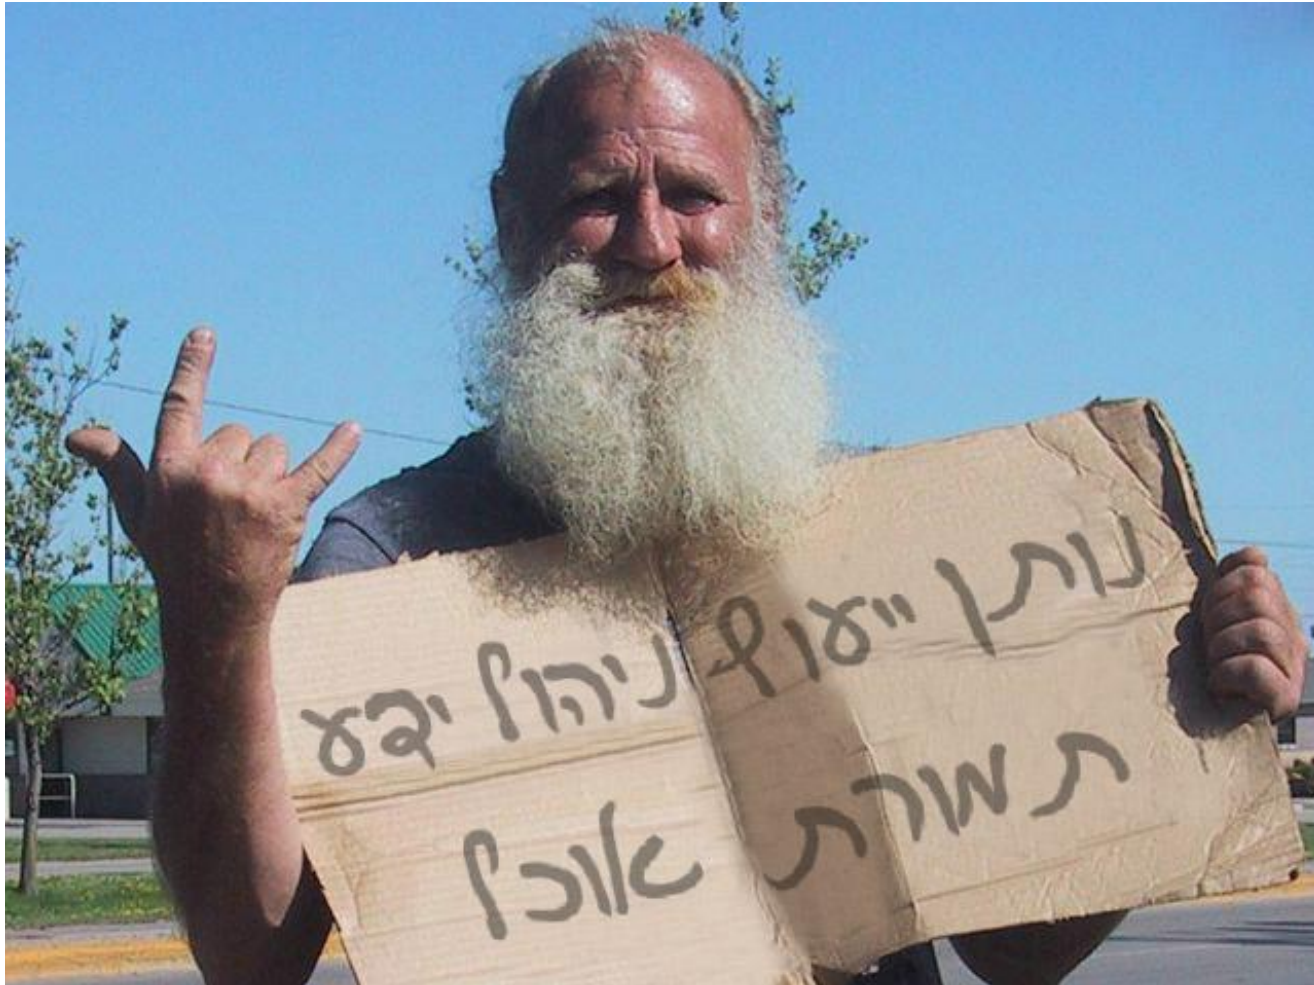 נותן ייעוץ ניהול ידע
תמורת אוכל